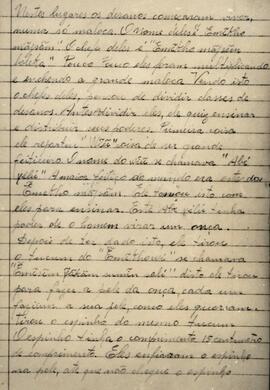 Nestes lugares os desanos começaram viver,
numa só maloca. O nome deles é "Emëkho
mahsãm". O chefe deles é "Emëkho mahsëm
Boléka". Pouco a pouco eles foram multiplicando
e enchendo a grande maloca. Vendo isto
o chefe deles, pensou de dividir classes de
desanos. Antes dividir eles, ele quis ensinar
e distribuir seus poderes. Primeira coisa
ele repartiu coisa de ser grande
feiticeiro. O nome do se chamava "Abé
yehé" A maior feitiço do mundo era este dos
"Emëkho mahsãm. Ele tomou isto com
eles para ensinar. Este Abé yehé tinha
poder de o homem virar um onça.
Depois de ter dado isto, ele tirou
o tucum do "Emëkhowi" se chamava
disto ele tirou
para fazer a pele da onça, cada um
faziam a sua pele, como eles queriam.
Tirou o espinho do mesmo tucum
O espinho tinha o comprimento 15 centímetro
de comprimento. Eles enfiaram o espinho
na pele, até que não chegue o espinho